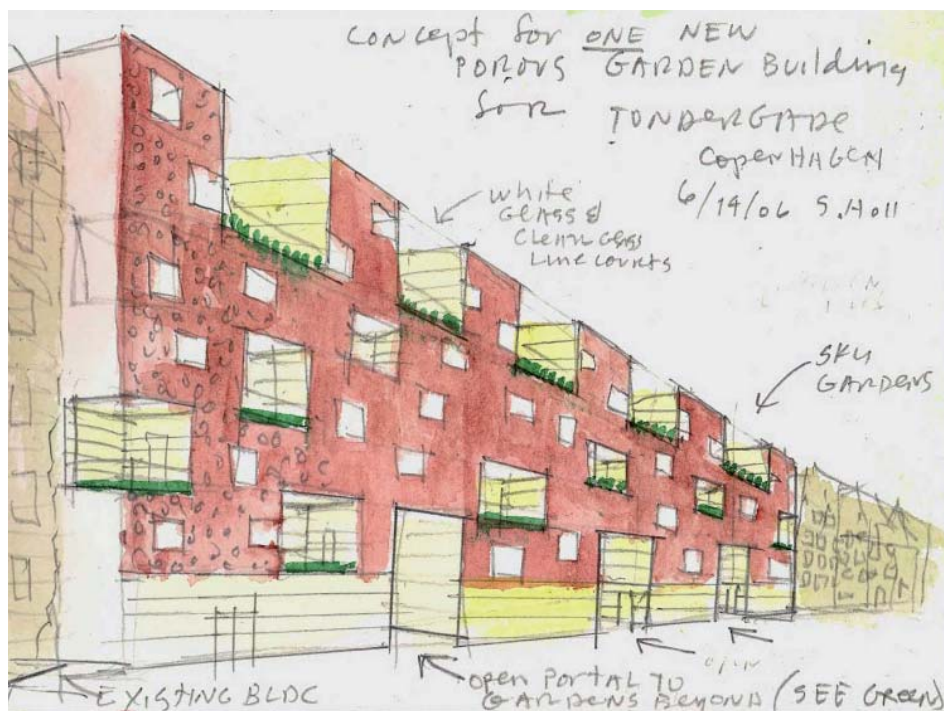 Concept for ONE NEW
POROUS GARDEN Building
for TONDERGADE
COPENHAGEN
6/14/06 S.Holl
WHITE
GLASS &
CLEAR GLASS
LINE COURTS
SKY
GARDENS
EXISTING BLDG
OPEN PORTAL TO
GARDENS BEYOND (SEE GREEN)
OPEN